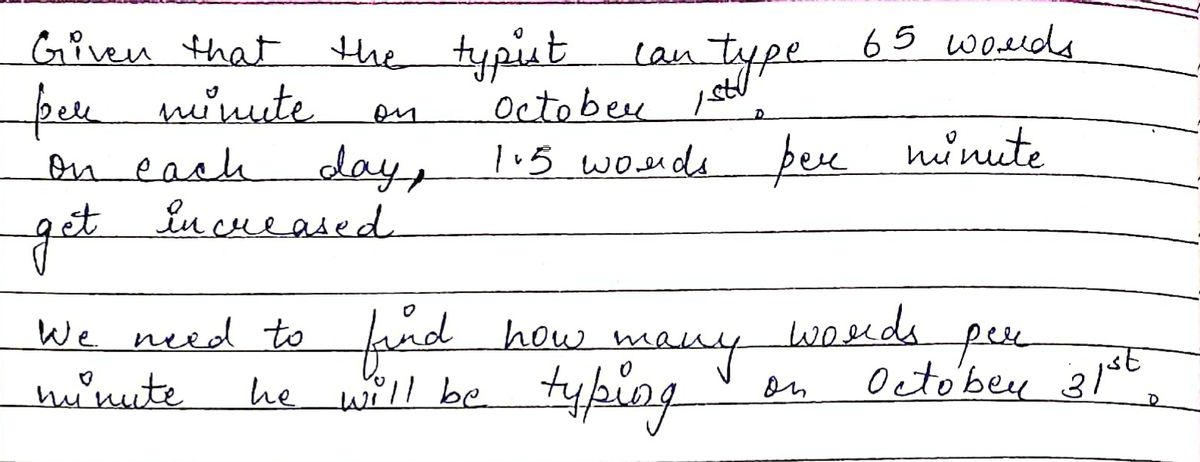 Given that the typist can type 65 words
per minute on October 1st.
on each day, 1.5 words per minute
get increased
We need to find how many words per
minute he will be typing on October 31st.